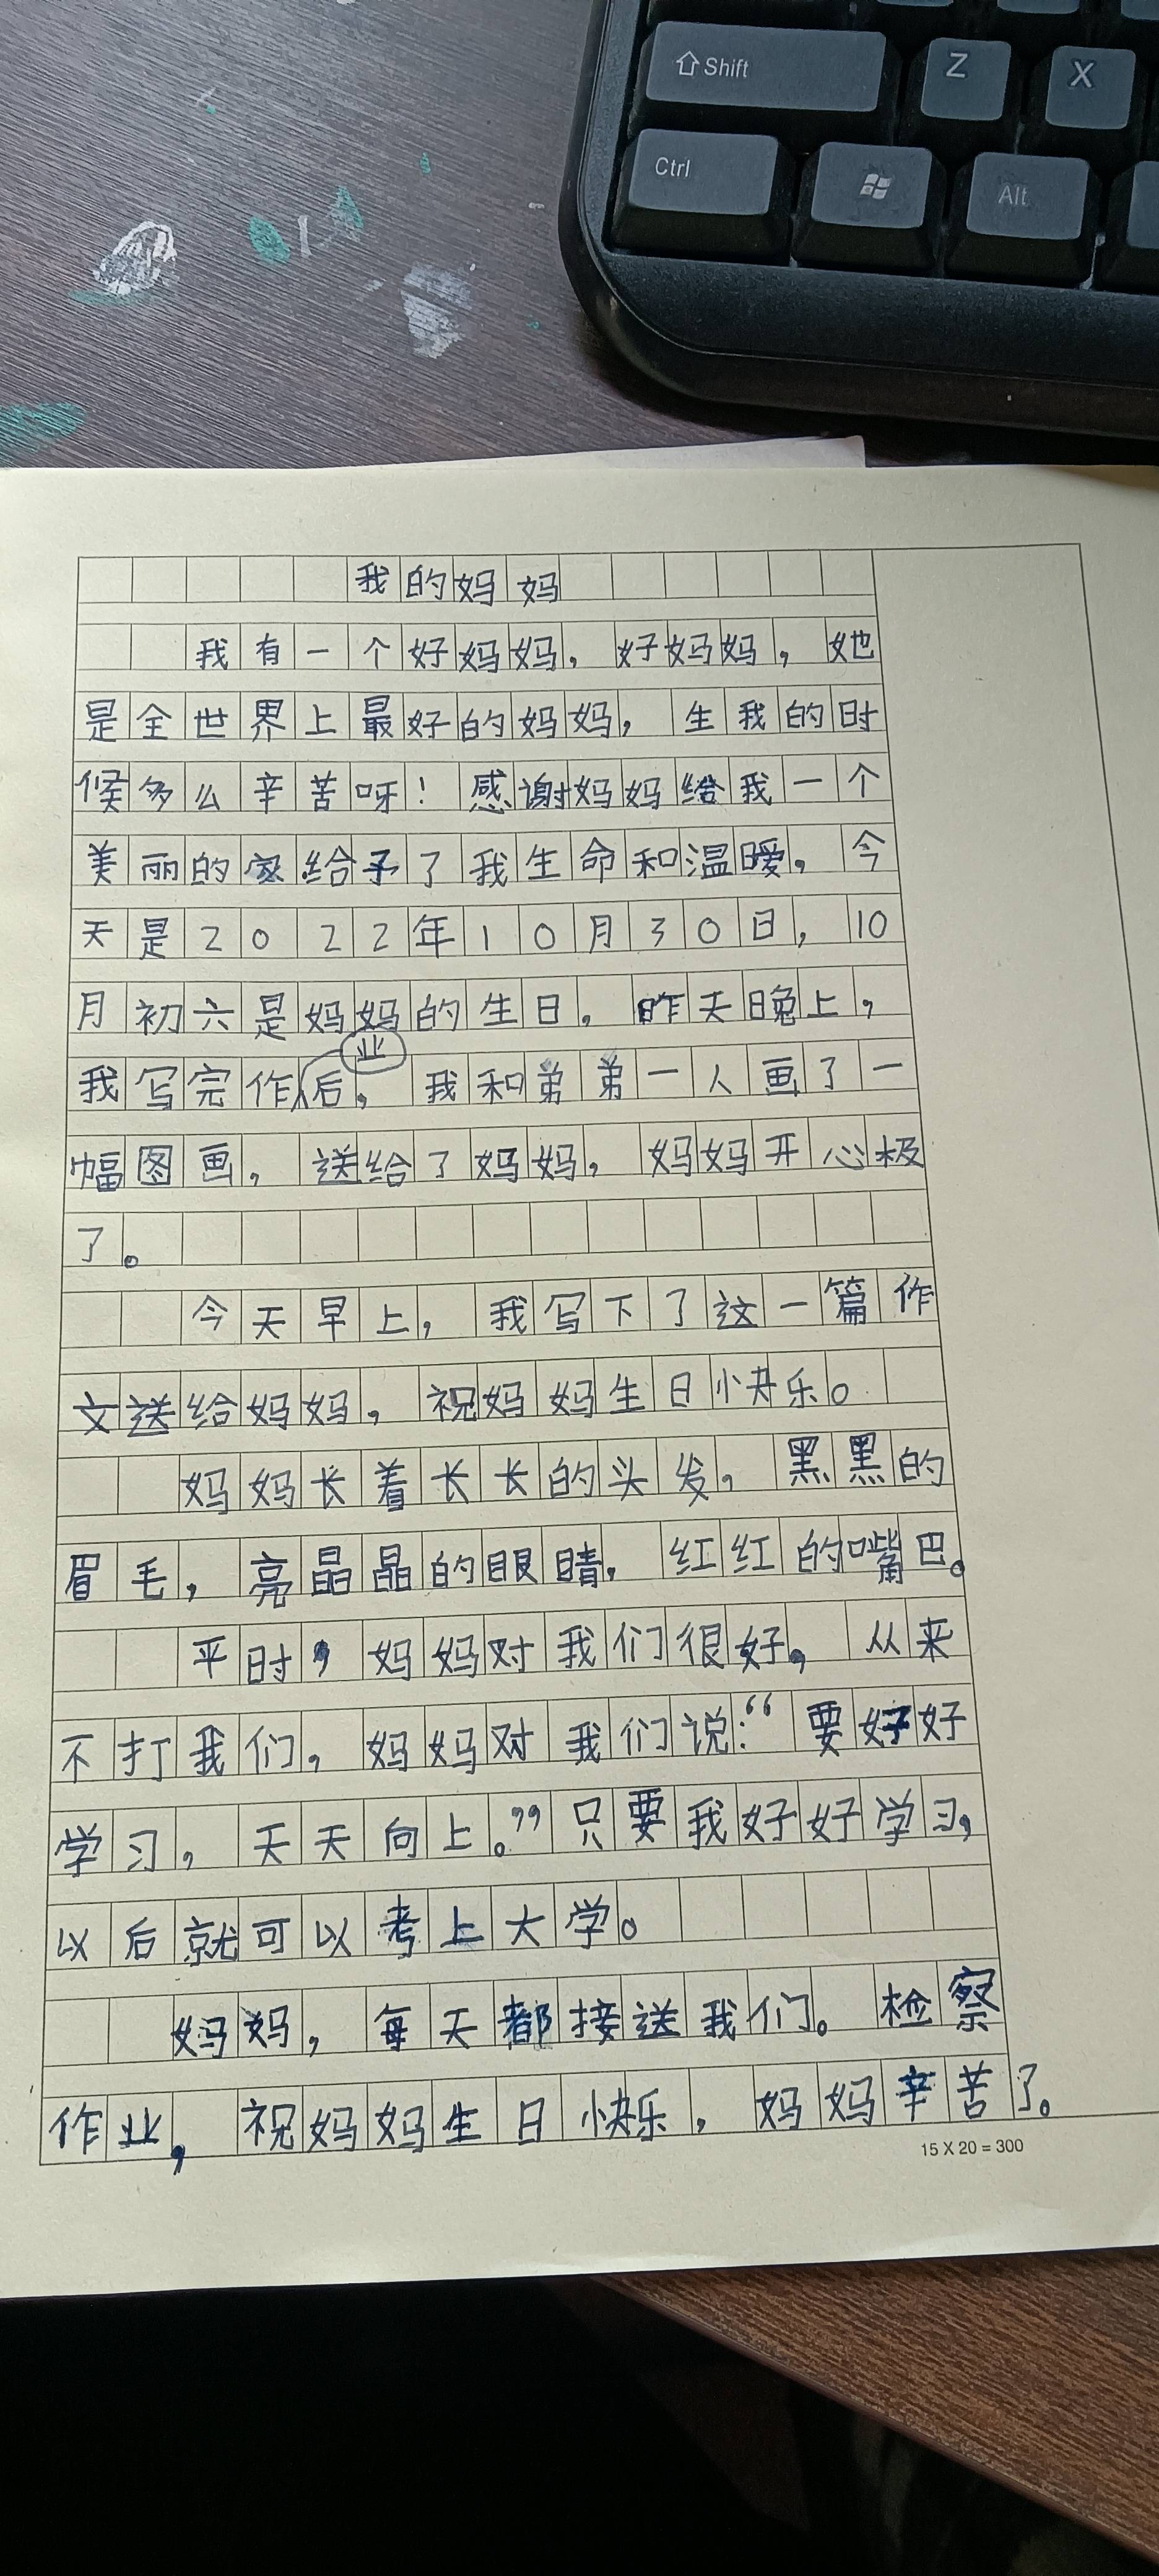 Shift
Z
X
Ctrl
Alt
我的妈妈
我有一个好妈妈，好妈妈，她
是全世界上最好的妈妈，生我的时
候多么辛苦呀！感谢妈妈给我一个
美丽的家给予了我生命和温暖。今
天是2022年10月30日，10
月初六是妈妈的生日。昨天晚上，
我写完作业后，我和弟弟一人画了一
幅图画，送给了妈妈，妈妈开心极
了。
今天早上，我写下了这一篇作
文送给妈妈，祝妈妈生日快乐。
妈妈长着长长的头发，黑黑的
眉毛，亮晶晶的眼睛，红红的嘴巴。
平时，妈妈对我们很好，从来
不打我们，妈妈对我们说：“要好好
学习，天天向上。”只要我好好学习，
以后就可以考上大学。
妈妈，每天都接送我们。检察
作业，祝妈妈生日快乐，妈妈辛苦了。
15 X 20 = 300